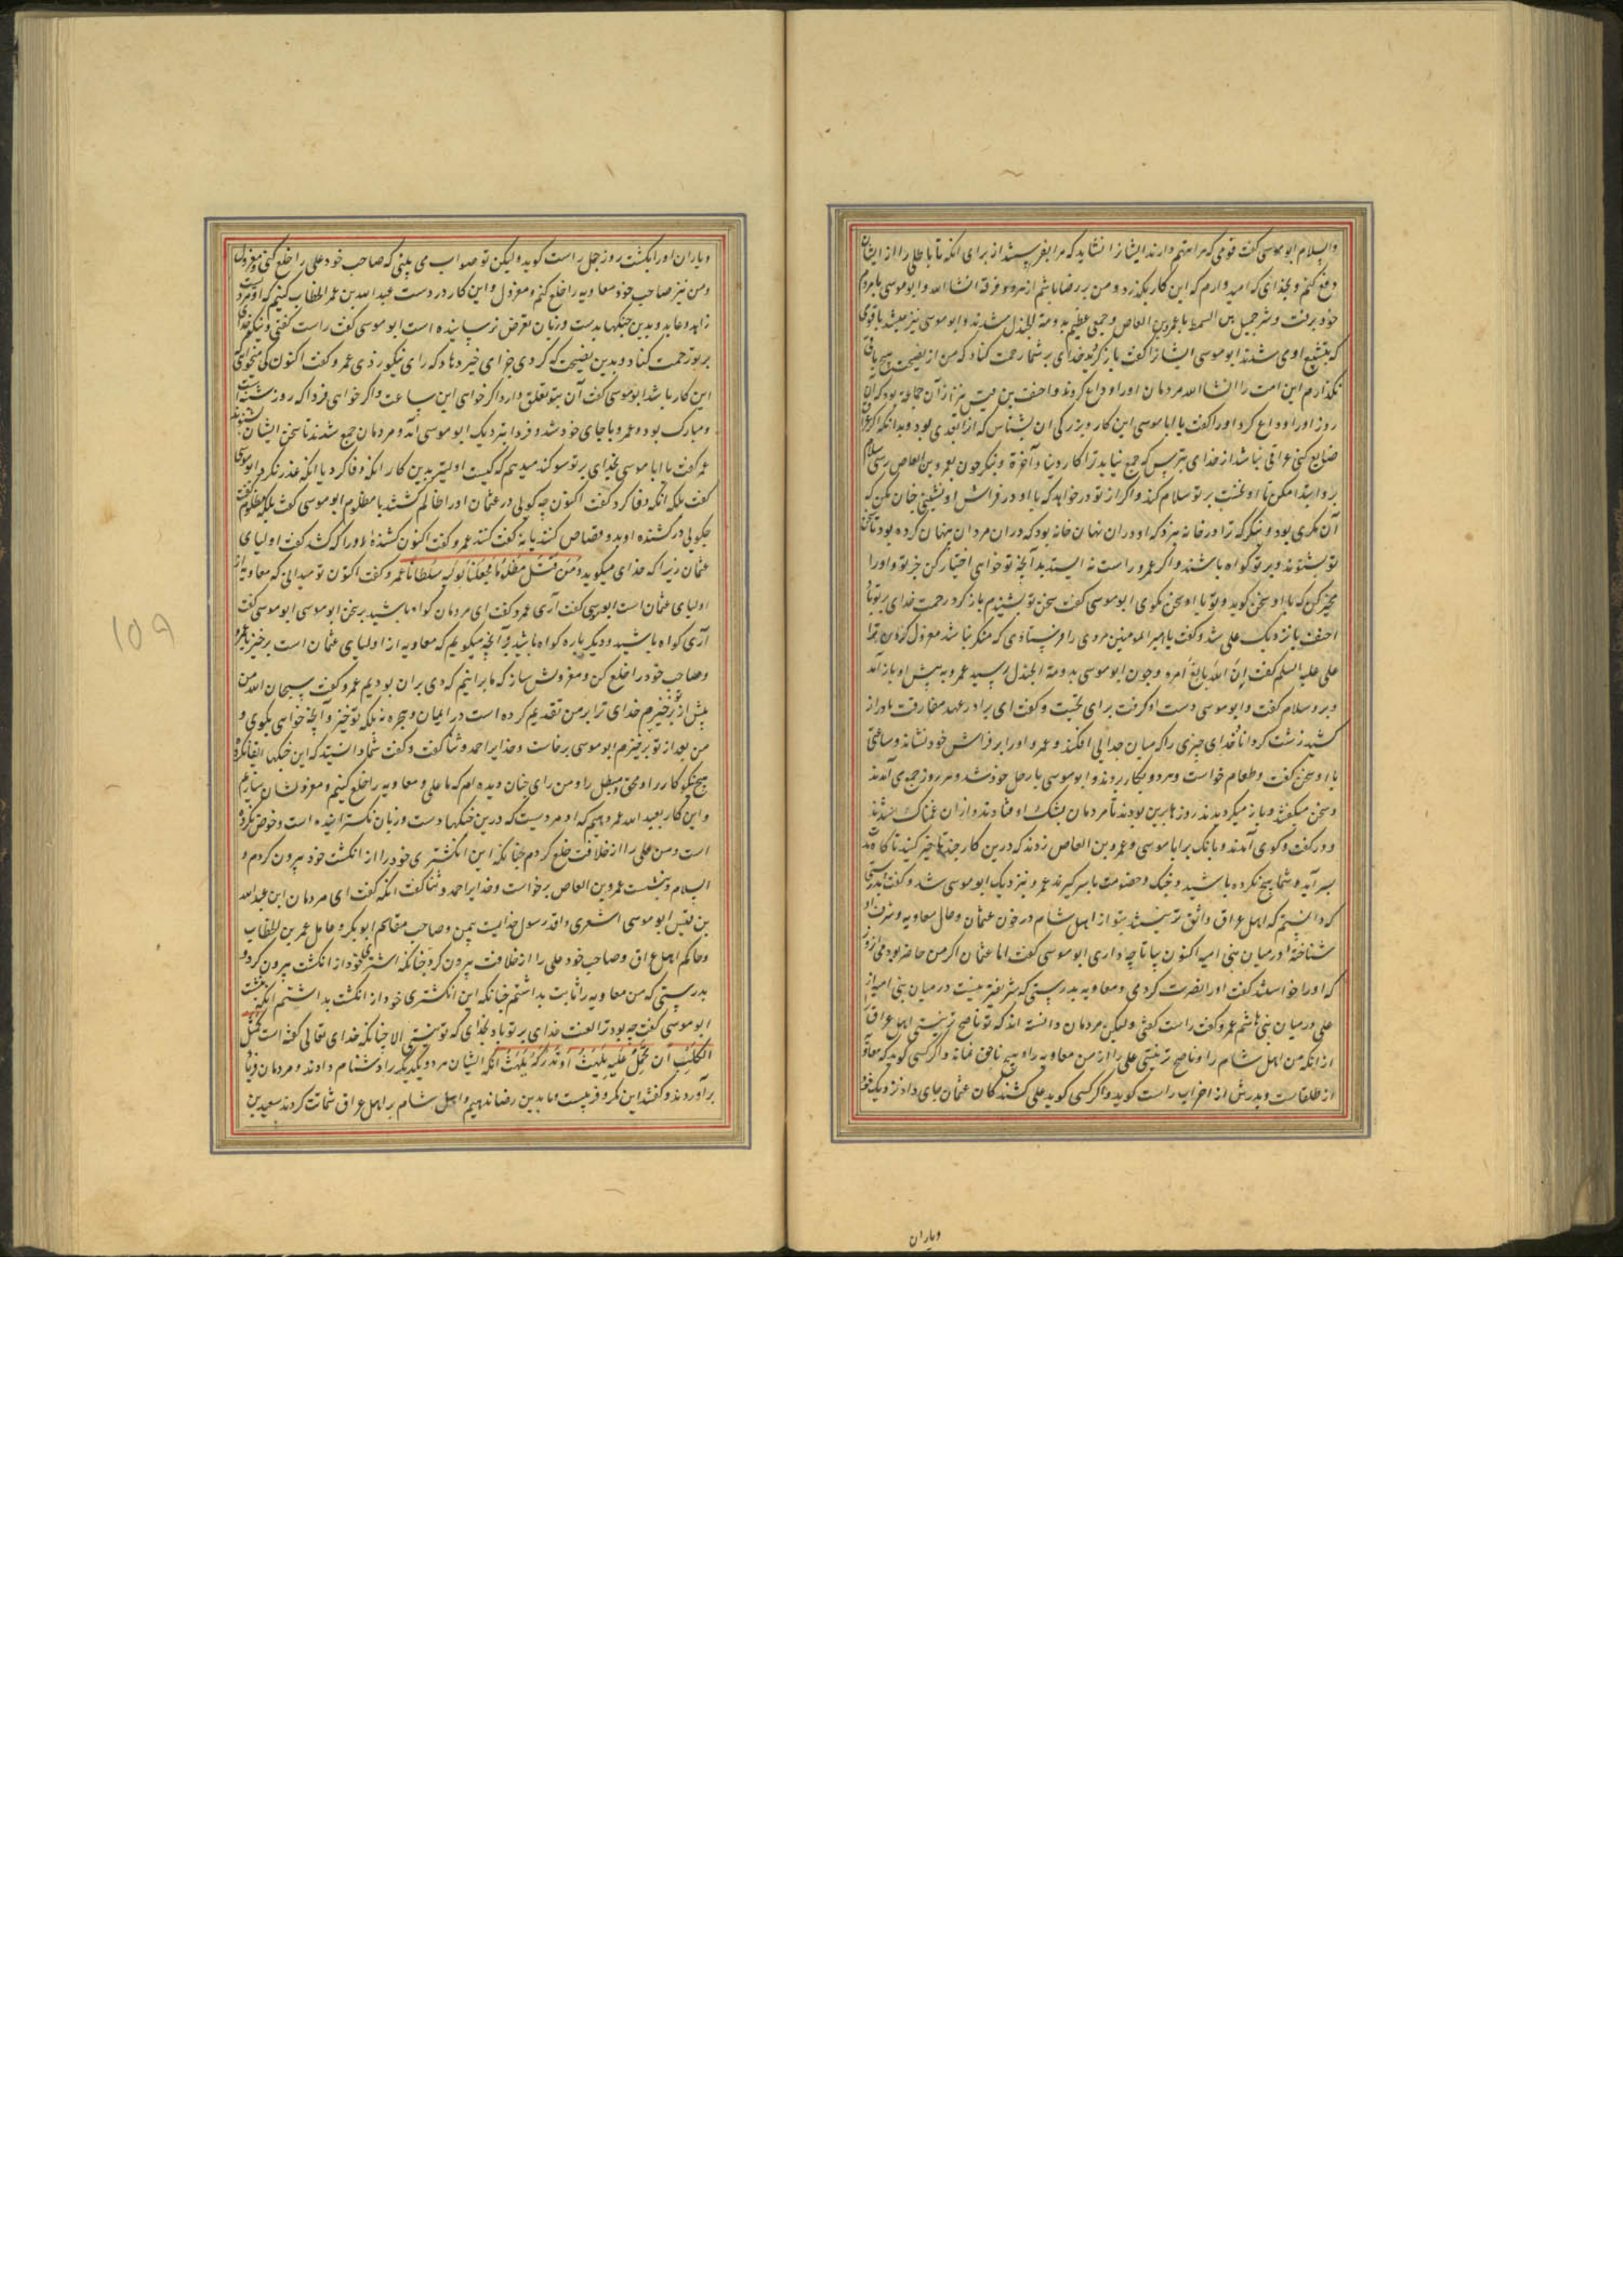 والسلام ابو موسی گفت قومی که مرا متهم دارند ایشانرا نشاید که مرا بفرستند از برای آنکه تا باطلی را از ایشان
دفع کنم و بخدای که امید دارم که این کار بگذرد و من بر رضا باشم از هر دو فرقه انشا الله و ابو موسی با مردم
خود برفت و شرحبیل بن السمط با عمرو بن العاص و جمعی عظیم بدومة الجندل شدند و ابو موسی نیز میشد با قومی
که بتشییع او می شدند ابو موسی ایشانرا گفت باز گردید خدای بر شما رحمت کناد که من از نصیحت هیچ باقی
نگذارم این امت را انشا الله مردمان او را وداع کردند و احنف بن قیس نیز از آن جماعة بود که آن
روز او را وداع کرد او را گفت یا ابا موسی این کار و بزرگی آن بشناس که از آنفدی بود و بدانکه اگر عراق
ضایع کنی عراقی نباشد از خدای بترس که جمع نیاید ترا کار دنیا و آخرة و بنگر چون بعمرو بن العاص رسی سلام
برو ابتدا مکن تا او نخست بر تو سلام کند و اگر از تو درخواهد که با او در فراش او نشینی چنان مکن که
آن مکری بود و بنگر که ترا در خانه نبرد که او در آن نهان خانه بود که در آن مردان پنهان کرده بود تا سخن
تو بشنوند و بر تو گواه باشند و اگر عمرو راست نه ایستد بدآنچه تو خواهی اختیار کن خبر تو و او را
مخیر کن که با او سخن گوید و تو با او سخن بگوی ابو موسی گفت سخن تو بشنیدم باز گرد رحمت خدای بر تو باد
احنف باز نزدیک علی شد و گفت یا امیر المؤمنین مردی را فرستادی که منکر نباشد معزول کردن ترا
علی علیه السلم گفت اِنَّ اللهَ بالِغُ اَمرِه و چون ابو موسی بدومة الجندل رسید عمرو به پیش او باز آمد
و برو سلام گفت و ابو موسی دست او گرفت برای تحیت و گفت ای برادر عهد مفارقت ما دراز
کشید زشت گرداناد خدای چیزی را که میان جدایی افکند و عمرو او را بر فراش خود نشاند و ساعتی
با او سخن گفت و طعام خواست و هر دو بکار بردند و ابو موسی با رحل خود شد و هر روز جمع می آمدند
و سخن میگفتند و باز میگردیدند روزها برین بودند تا مردمان بشک اوفتادند و از آن غمناک میشدند
و در گفت و گوی آمدند و بانگ بر ابا موسی و عمرو بن العاص زدند که درین کار چند تاخیر کنید تا گاه مدت
بسر آید و شما هیچ نکرده باشید و جنگ و خصومت با سر گیرند عمرو نیز نزدیک ابو موسی شد و گفت بدرستی
که دانستم که اهل عراق واثق تر نیستند بتو از اهل شام در خون عثمان و حال معاویه و شرف او
شناختهٔ در میان بنی امیه اکنون بیا تا چه داری ابو موسی گفت اما عثمان اگر من حاضر بودمی آن روز
که او را خواستند کشت او را نصرت کردمی و معاویه بدرستی که شریفتر نیست در میان بنی امیه از
علی در میان بنی هاشم عمرو گفت راست گفتی ولیکن مردمان دانسته اند که تو ناصح تر نیستی اهل عراق را
از آنکه من اهل شام را و ناصح تر نیستی علی را از من معاویه را و هیچ ناحق نماند و اگر کسی گوید که معاویه
از طلقاست و پدرش از احزاب راست گوید و اگر کسی گوید علی کشندگان عثمان جای داد نزدیک خود
ویاران
ویاران او را بکشت روز جمل راست گوید ولیکن تو صواب می بینی که صاحب خود علی را خلع کنی و معزول
ومن نیز صاحب خود معاویه را خلع کنم و معزول و این کار در دست عبد الله بن عمر الخطاب کنیم که او مردیست
زاهد و عابد و بدین جنگها بدست و زبان تعرض نرسانیده است ابو موسی گفت راست گفتی و نیکو خدای
بر تو رحمت کناد و بدین نصیحت که کردی جزای خیر دهاد که رای نیکو زدی عمرو گفت اکنون کی میخواهی
این کار باشد ابو موسی گفت آن بتو تعلق دارد اگر خواهی این ساعت و اگر خواهی فردا که روز شنبه است
ومبارک بود و عمرو با جای خود شد و فردا بنزدیک ابو موسی آمد و مردمان جمع شدند تا سخن ایشان بشنوند
عمرو گفت یا ابا موسی بخدای بر تو سوگند میدهم که کیست اولیتر بدین کار آنکه وفا کرد یا آنکه غدر کرد ابو موسی
گفت بلکه آنکه وفا کرد گفت اکنون چه گویی در عثمان او را ظالم کشتند یا مظلوم ابو موسی گفت بلکه مظلوم گفت
چگویی در کشندهٔ او بدو قصاص کنند یا نه گفت کنند عمرو گفت اکنون کشندهٔ او را که کشد گفت اولیای
عثمان زیرا که خدای میگوید وَ مَن قُتِلَ مَظلُوماً فَجَعَلنا لِوَلِیِّهِ سُلطاناً عمرو گفت اکنون تو میدانی که معاویه از
اولیای عثمان است ابو موسی گفت آری عمرو گفت ای مردمان گواه باشید بر سخن ابو موسی ابو موسی گفت
آری گواه باشید و دیگر باره گواه باشید بر آنچه میگویم که معاویه از اولیای عثمان است برخیز یا عمرو
وصاحب خود را خلع کن و معزولش ساز که ما بر آنیم که دی بر آن بودیم عمرو گفت سبحان الله من
پیش از تو برخیزم خدای ترا بر من تقدیم کرده است در ایمان و هجره نه بلکه تو خیز و آنچه خواهی بگوی و
من بعد از تو برخیزم ابو موسی برخاست و خدایرا حمد و ثنا گفت و گفت شما دانستید که این جنگها ابقا نکرد
هیچ نکو کار را و محق و مبطل را و من رای چنان دیده ام که ما علی و معاویه را خلع کنیم و معزولشان سازیم
واین کار بعبد الله عمر دهیم که او مردیست که درین جنگها دست و زبان نگسترانیده است و خوض نکرده
است و من علی را از خلافت خلع کردم چنانکه این انگشتری خود را از انگشت خود بیرون کردم و
السلام و بنشست عمرو بن العاص برخواست و خدایرا حمد و ثنا گفت آنکه گفت ای مردمان این عبد الله
بن قیس ابو موسی اشعری وافد رسول خدایست بیمن و صاحب مقاسم ابو بکر و عامل عمر بن الخطاب
وحاکم اهل عراق و صاحب خود علی را از خلافت بیرون کرد چنانکه انشتری خود از انگشت بیرون کرد و
بدرستی که من معاویه را ثابت بداشتم چنانکه این انگشتری خود از انگشت بداشتم آنکه بنشست
ابو موسی گفت چه بود ترا لعنت خدای بر تو باد بخدای که تو نیستی الا چنانکه خدای تعالی گفته است کَمَثَلِ
الکَلبِ اِن تَحمِل عَلَیهِ یَلهَث اَو تَترُکهُ یَلهَث آنکه ایشان هر دو یکدیگر را دشنام دادند و مردمان فریاد
برآوردند و گفتند این مکر و فریبست و ما بدین رضا ندهیم و اهل شام بر اهل عراق شماتت کردند سعید بن
۱۵۹